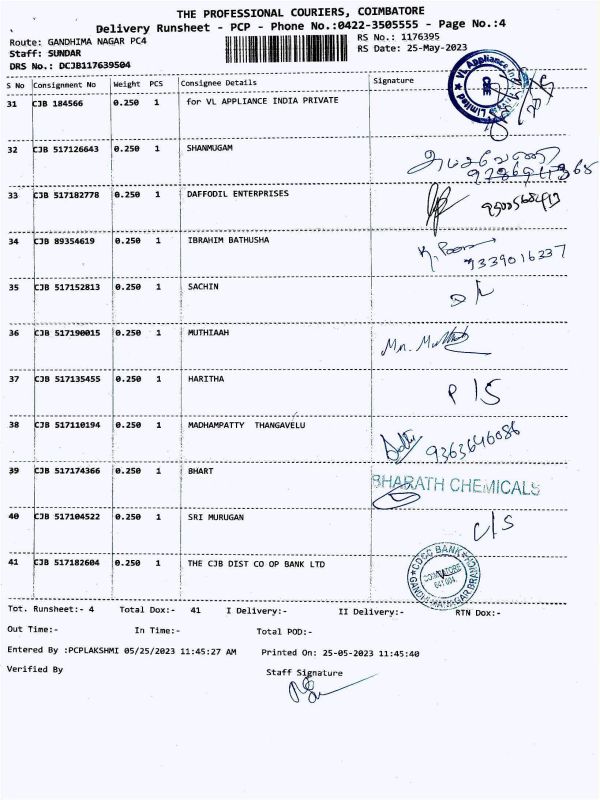 THE PROFESSIONAL COURIERS, COIMBATORE
Delivery Runsheet - PCP - Phone No.:0422-3505555 - Page No.:4
Route: GANDHIMA NAGAR PC4 RS No.: 1176395
Staff: SUNDAR RS Date: 25-May-2023
DRS No.: DCJB117639504
S No Consignment No Weight PCS Consignee Details Signature
31 CJB 184566 0.250 1 for VL APPLIANCE INDIA PRIVATE
32 CJB 517126643 0.250 1 SHANMUGAM
33 CJB 517182778 0.250 1 DAFFODIL ENTERPRISES
34 CJB 89354619 0.250 1 IBRAHIM BATHUSHA
9339016337
35 CJB 517152813 0.250 1 SACHIN
36 CJB 517190015 0.250 1 MUTHIAAH
37 CJB 517135455 0.250 1 HARITHA
P/S
38 CJB 517110194 0.250 1 MADHAMPATTY THANGAVELU
9363646086
39 CJB 517174366 0.250 1 BHART
BHARATH CHEMICALS
40 CJB 517104522 0.250 1 SRI MURUGAN
C/S
41 CJB 517182604 0.250 1 THE CJB DIST CO OP BANK LTD
CDCC BANK
COIMBATORE
Tot. Runsheet:- 4 Total Dox:- 41 I Delivery:- II Delivery:- RTN Dox:-
Out Time:- In Time:- Total POD:-
Entered By :PCPLAKSHMI 05/25/2023 11:45:27 AM Printed On: 25-05-2023 11:45:40
Verified By Staff Signature